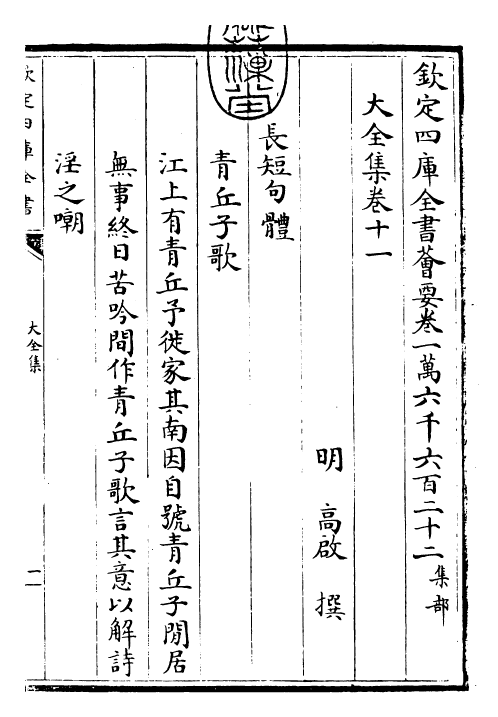 欽定四庫全書薈要卷一萬六千六百二十二 集部
大全集卷十一
明 高啟 撰
長短句體
青丘子歌
江上有青丘予徙家其南因自號青丘子閒居
無事終日苦吟間作青丘子歌言其意以解詩
淫之嘲
欽定四庫全書
大全集
一